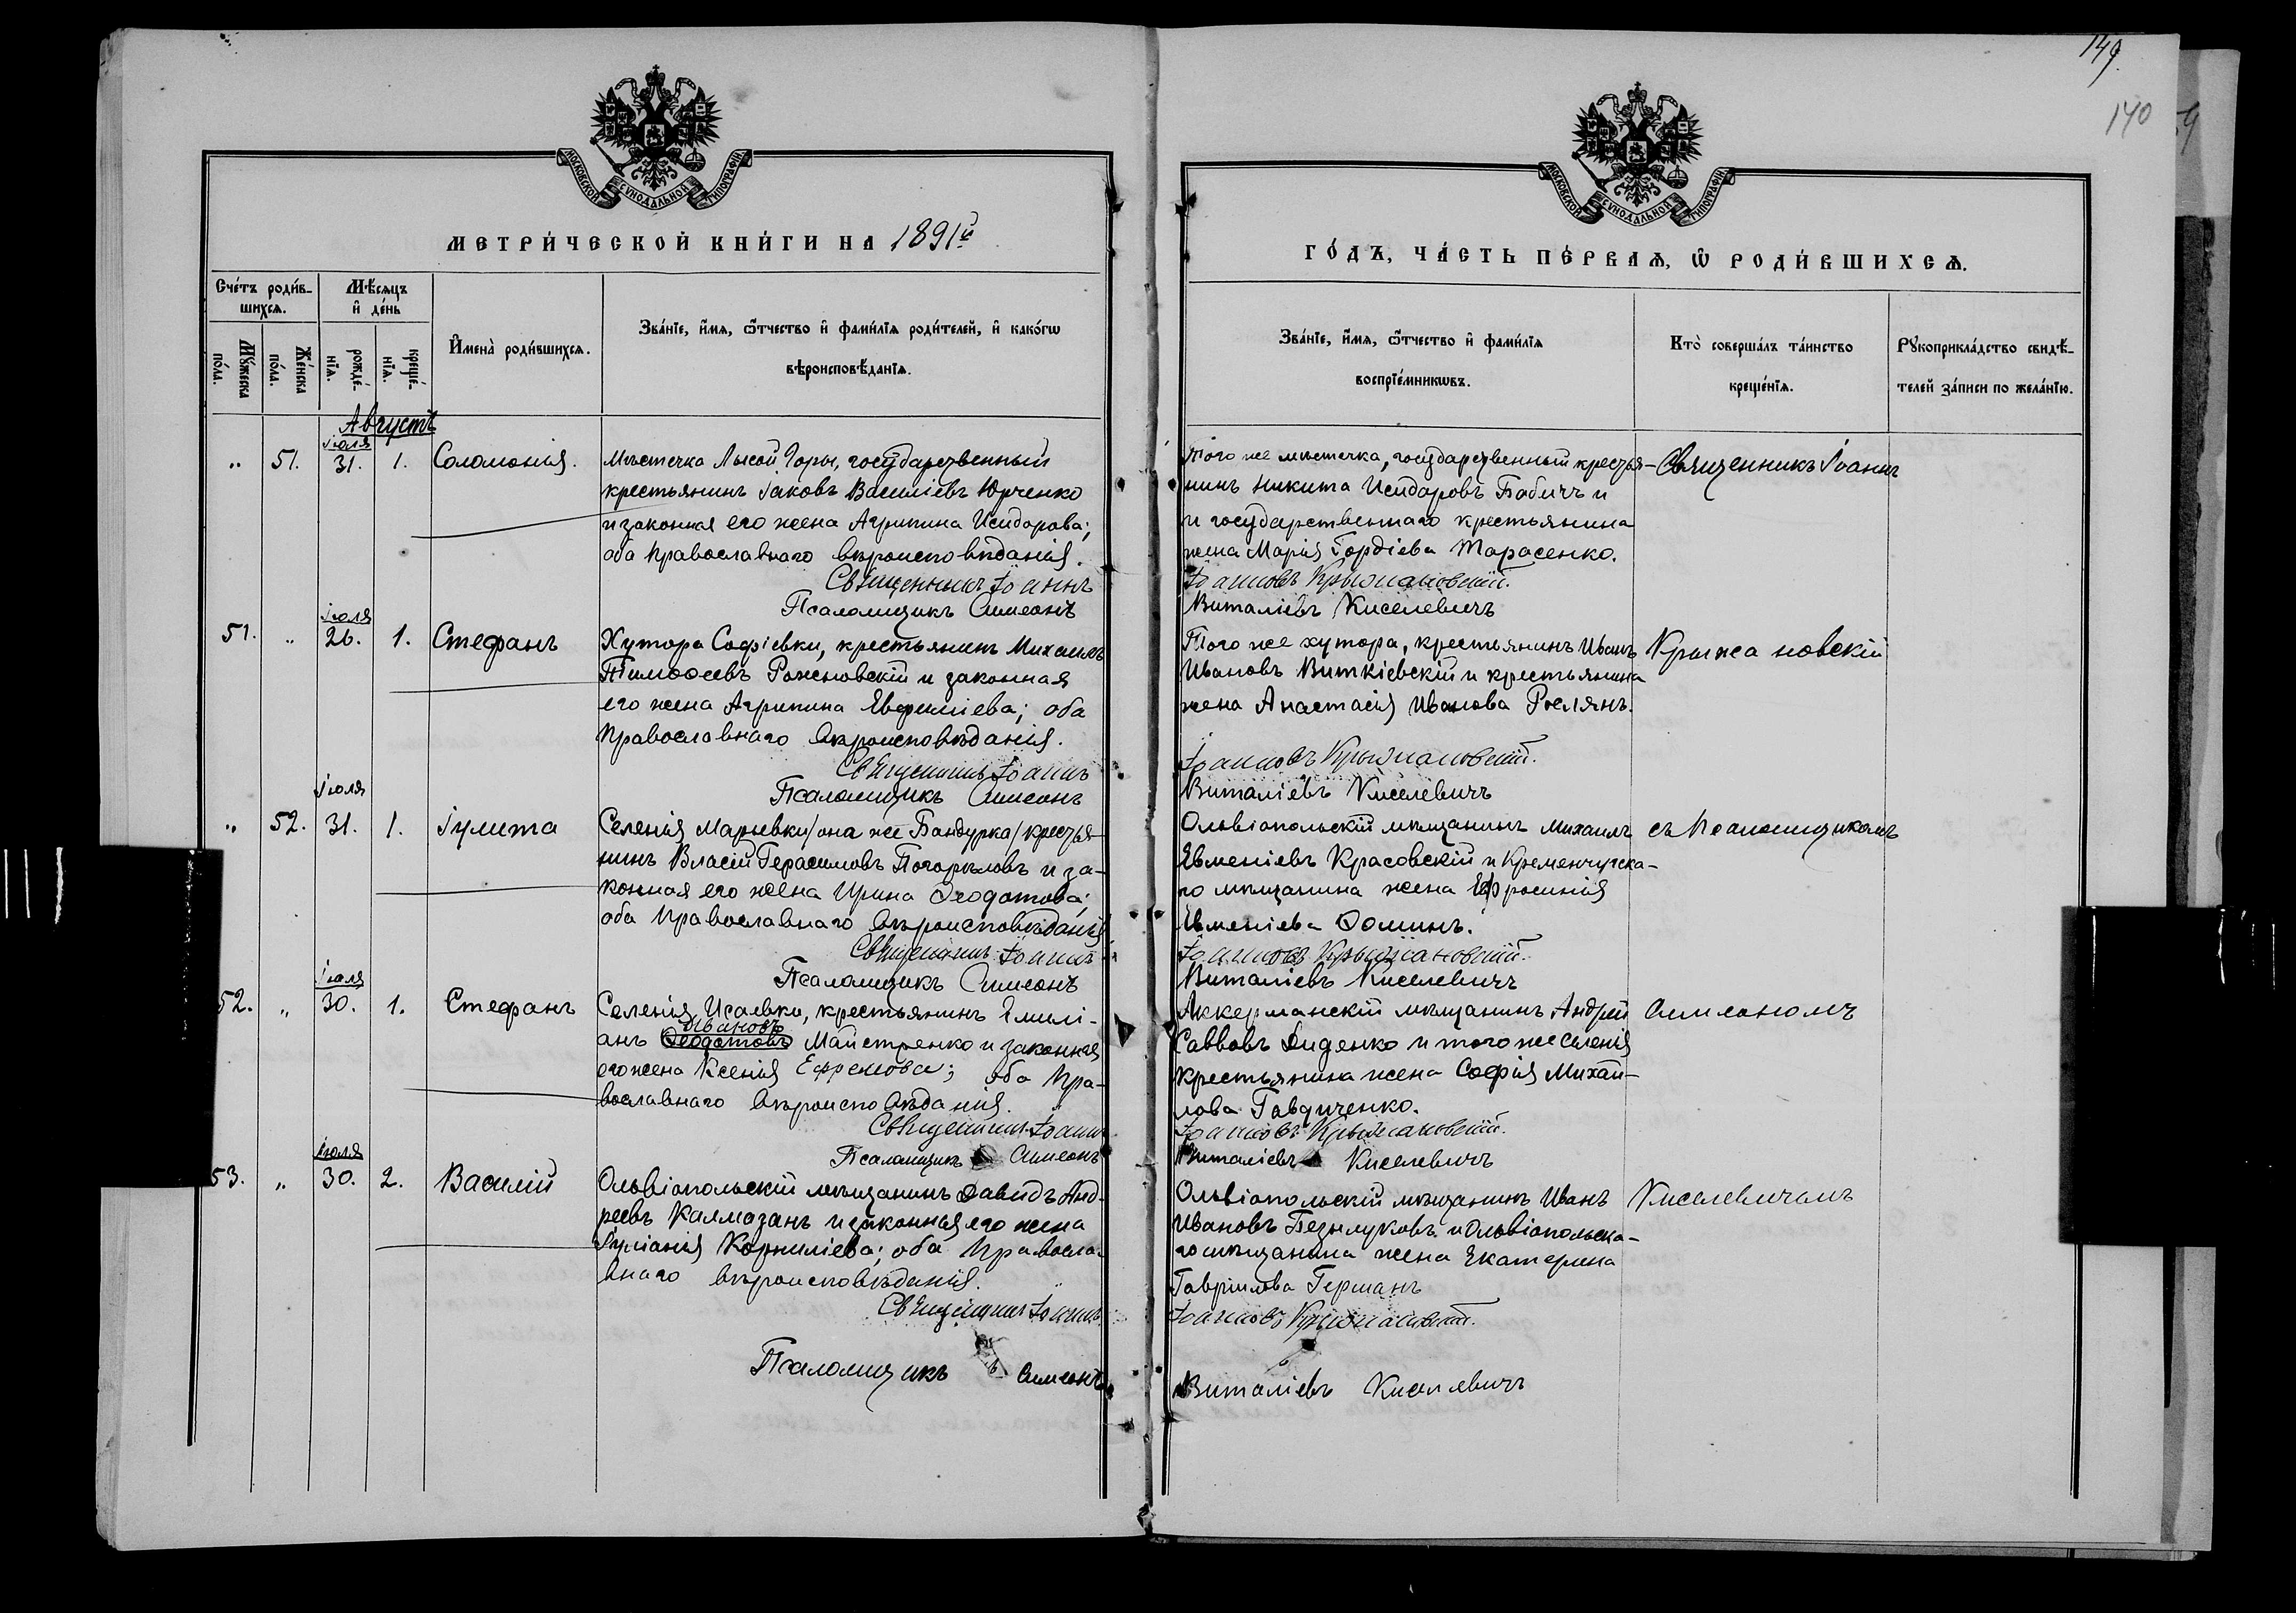 149.
140
59
МОСКОВСКОЙ СУНОДАЛЬНОЙ ТИПОГРАФІИ
МЕТРИ́ЧЕСКОЙ КНИ́ГИ НА 1891й
Сче́тъ роди́в-
шихсѧ.
Мѣ́сѧцъ
и҆ де́нь
И҆мена̀ роди́вшихсѧ.
Зва́нїе, и҆́мѧ, ѻ҆́тчество и҆ фами́лїѧ роди́телей, и҆ како́гѡ
вѣроисповѣ́данїѧ.
Мꙋ́жеска
по́ла.
Же́нска
по́ла.
рожде́-
нїѧ.
креще́-
нїѧ.
Августъ
Іюля
„ 51. 31. 1. Соломонія. Мѣстечка Лысой Горы, государственный
крестьянинъ Іаковъ Василіевъ Юрченко
и законная его жена Агрипина Исидорова;
оба православнаго вѣроисповѣданія.
Священникъ Іоаннъ
Псаломщикъ Симеонъ
Іюля
51. „ 26. 1. Стефанъ Хутора Софіевки, крестьянинъ Михаилъ
Тимоѳеевъ Роженовскій и законная
его жена Агрипина Евфиміева; оба
православнаго вѣроисповѣданія.
Священникъ Іоаннъ
Псаломщикъ Симеонъ
Іюля
„ 52. 31. 1. Іулита Селенія Марьевки /она же Бандурка/ крестья-
нинъ Власій Герасимовъ Погорѣловъ и за-
конная его жена Ирина Ѳеодотова;
оба православнаго вѣроисповѣданія
Священникъ Іоаннъ
Псаломщикъ Симеонъ
Іюля
52. „ 30. 1. Стефанъ Селенія Исаевки, крестьянинъ Емилі-
Ивановъ
анъ Ѳеодотовъ Майстренко и законная
его жена Ксенія Ефремова; оба пра-
вославнаго вѣроисповѣданія.
Священникъ Іоаннъ
Псаломщикъ Симеонъ
Іюля
53. „ 30. 2. Василій Ольвіопольскій мѣщанинъ Давидъ Анд-
реевъ Калмазанъ и законная его жена
Іуліанія Корниліева; оба правосла-
внаго вѣроисповѣданія.
Священникъ Іоаннъ
Псаломщикъ Симеонъ
МОСКОВСКОЙ СУНОДАЛЬНОЙ ТИПОГРАФІИ
ГО́ДЪ, ЧА́СТЬ ПЕ́РВАѦ, Ѡ҆ РОДИ́ВШИХСѦ.
Зва́нїе, и҆́мѧ, ѻ҆́тчество и҆ фами́лїѧ
воспрїе́мникѡвъ.
Кто̀ соверша́лъ та́инство
креще́нїѧ.
Рꙋкоприкла́дство свидѣ́-
телей за́писи по жела́нїю.
Того же мѣстечка, государственный крестья- Священникъ Іоаннъ
нинъ Никита Исидоровъ Бабичъ и
и государственнаго крестьянина
жена Марія Гордіева Тарасенко.
Іоанновъ Крыжановскій.
Виталіевъ Киселевичъ
Того же хутора, крестьянинъ Иванъ Крыжановскій
Ивановъ Виткіевскій и крестьянина
жена Анастасія Иванова Рослянъ.
Іоанновъ Крыжановскій.
Виталіевъ Киселевичъ
Ольвіопольскій мѣщанинъ Михаилъ съ Псаломщикомъ
Евменіевъ Красовскій и Кременчугска-
го мѣщанина жена Ефросинія
Евменіева Ѳоминъ.
Іоанновъ Крыжановскій.
Виталіевъ Киселевичъ
Аккерманскій мѣщанинъ Андрей Симеономъ
Саввовъ Диденко и того же селенія
крестьянина жена Софія Михай-
лова Гавдиченко.
Іоанновъ Крыжановскій.
Виталіевъ Киселевичъ
Ольвіопольскій мѣщанинъ Иванъ Киселевичемъ
Ивановъ Безмуковъ и Ольвіопольска-
го мѣщанина жена Екатерина
Гавріилова Германъ
Іоанновъ Крыжановскій.
Виталіевъ Киселевичъ